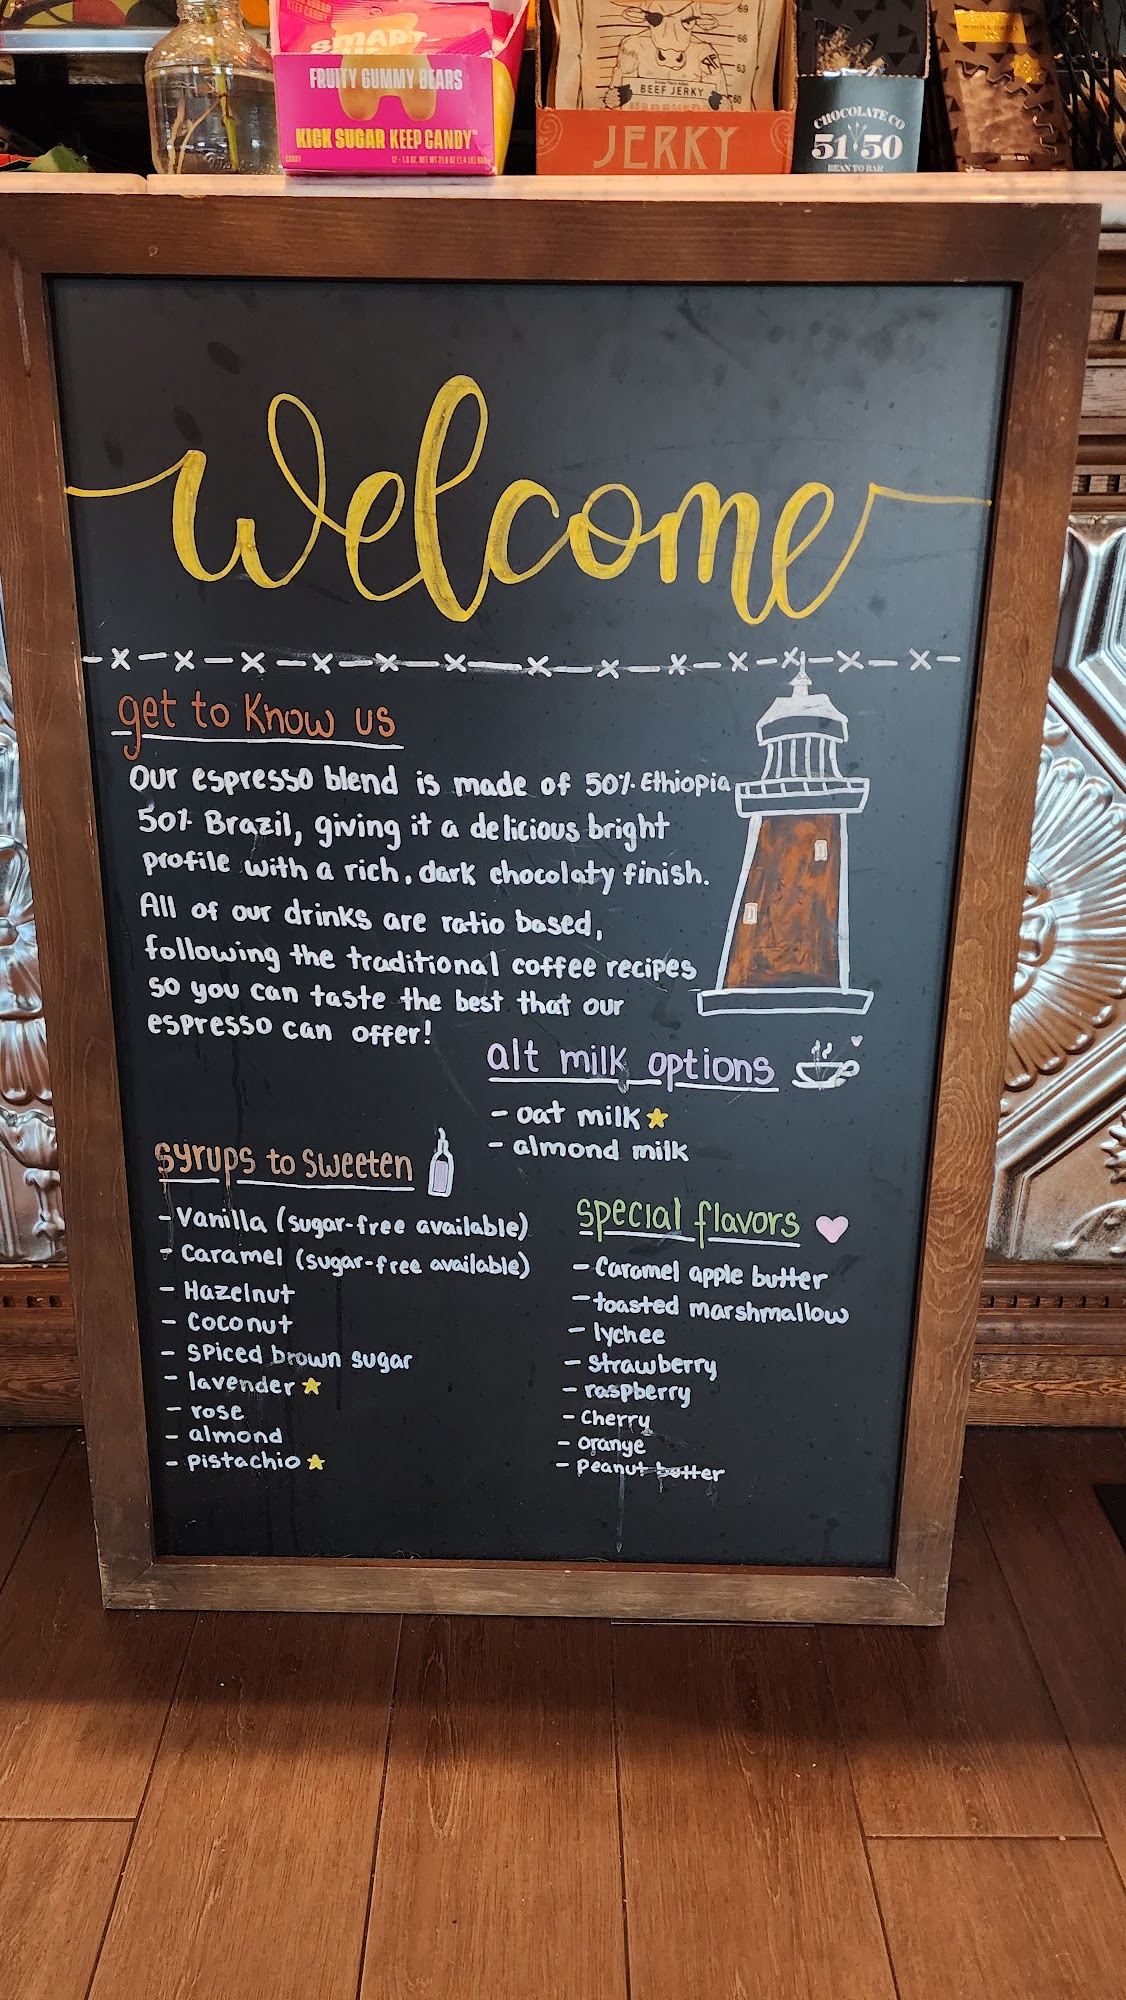 SMART
FRUITY GUMMY BEARS
KICK SUGAR KEEP CANDY™
CANDY
66
63
60
BEEF JERKY
JERKY
CHOCOLATE CO
51 50
BEAN TO BAR
welcome
get to know us
Our espresso blend is made of 50% Ethiopia
50% Brazil, giving it a delicious bright
profile with a rich, dark chocolaty finish.
All of our drinks are ratio based,
following the traditional coffee recipes
so you can taste the best that our
espresso can offer!
alt milk options
- oat milk
- almond milk
syrups to sweeten
- Vanilla (sugar-free available)
- Caramel (sugar-free available)
- Hazelnut
- Coconut
- spiced brown sugar
- lavender
- rose
- almond
- pistachio
special flavors
- Caramel apple butter
- toasted marshmallow
- lychee
- strawberry
- raspberry
- Cherry
- orange
- Peanut butter